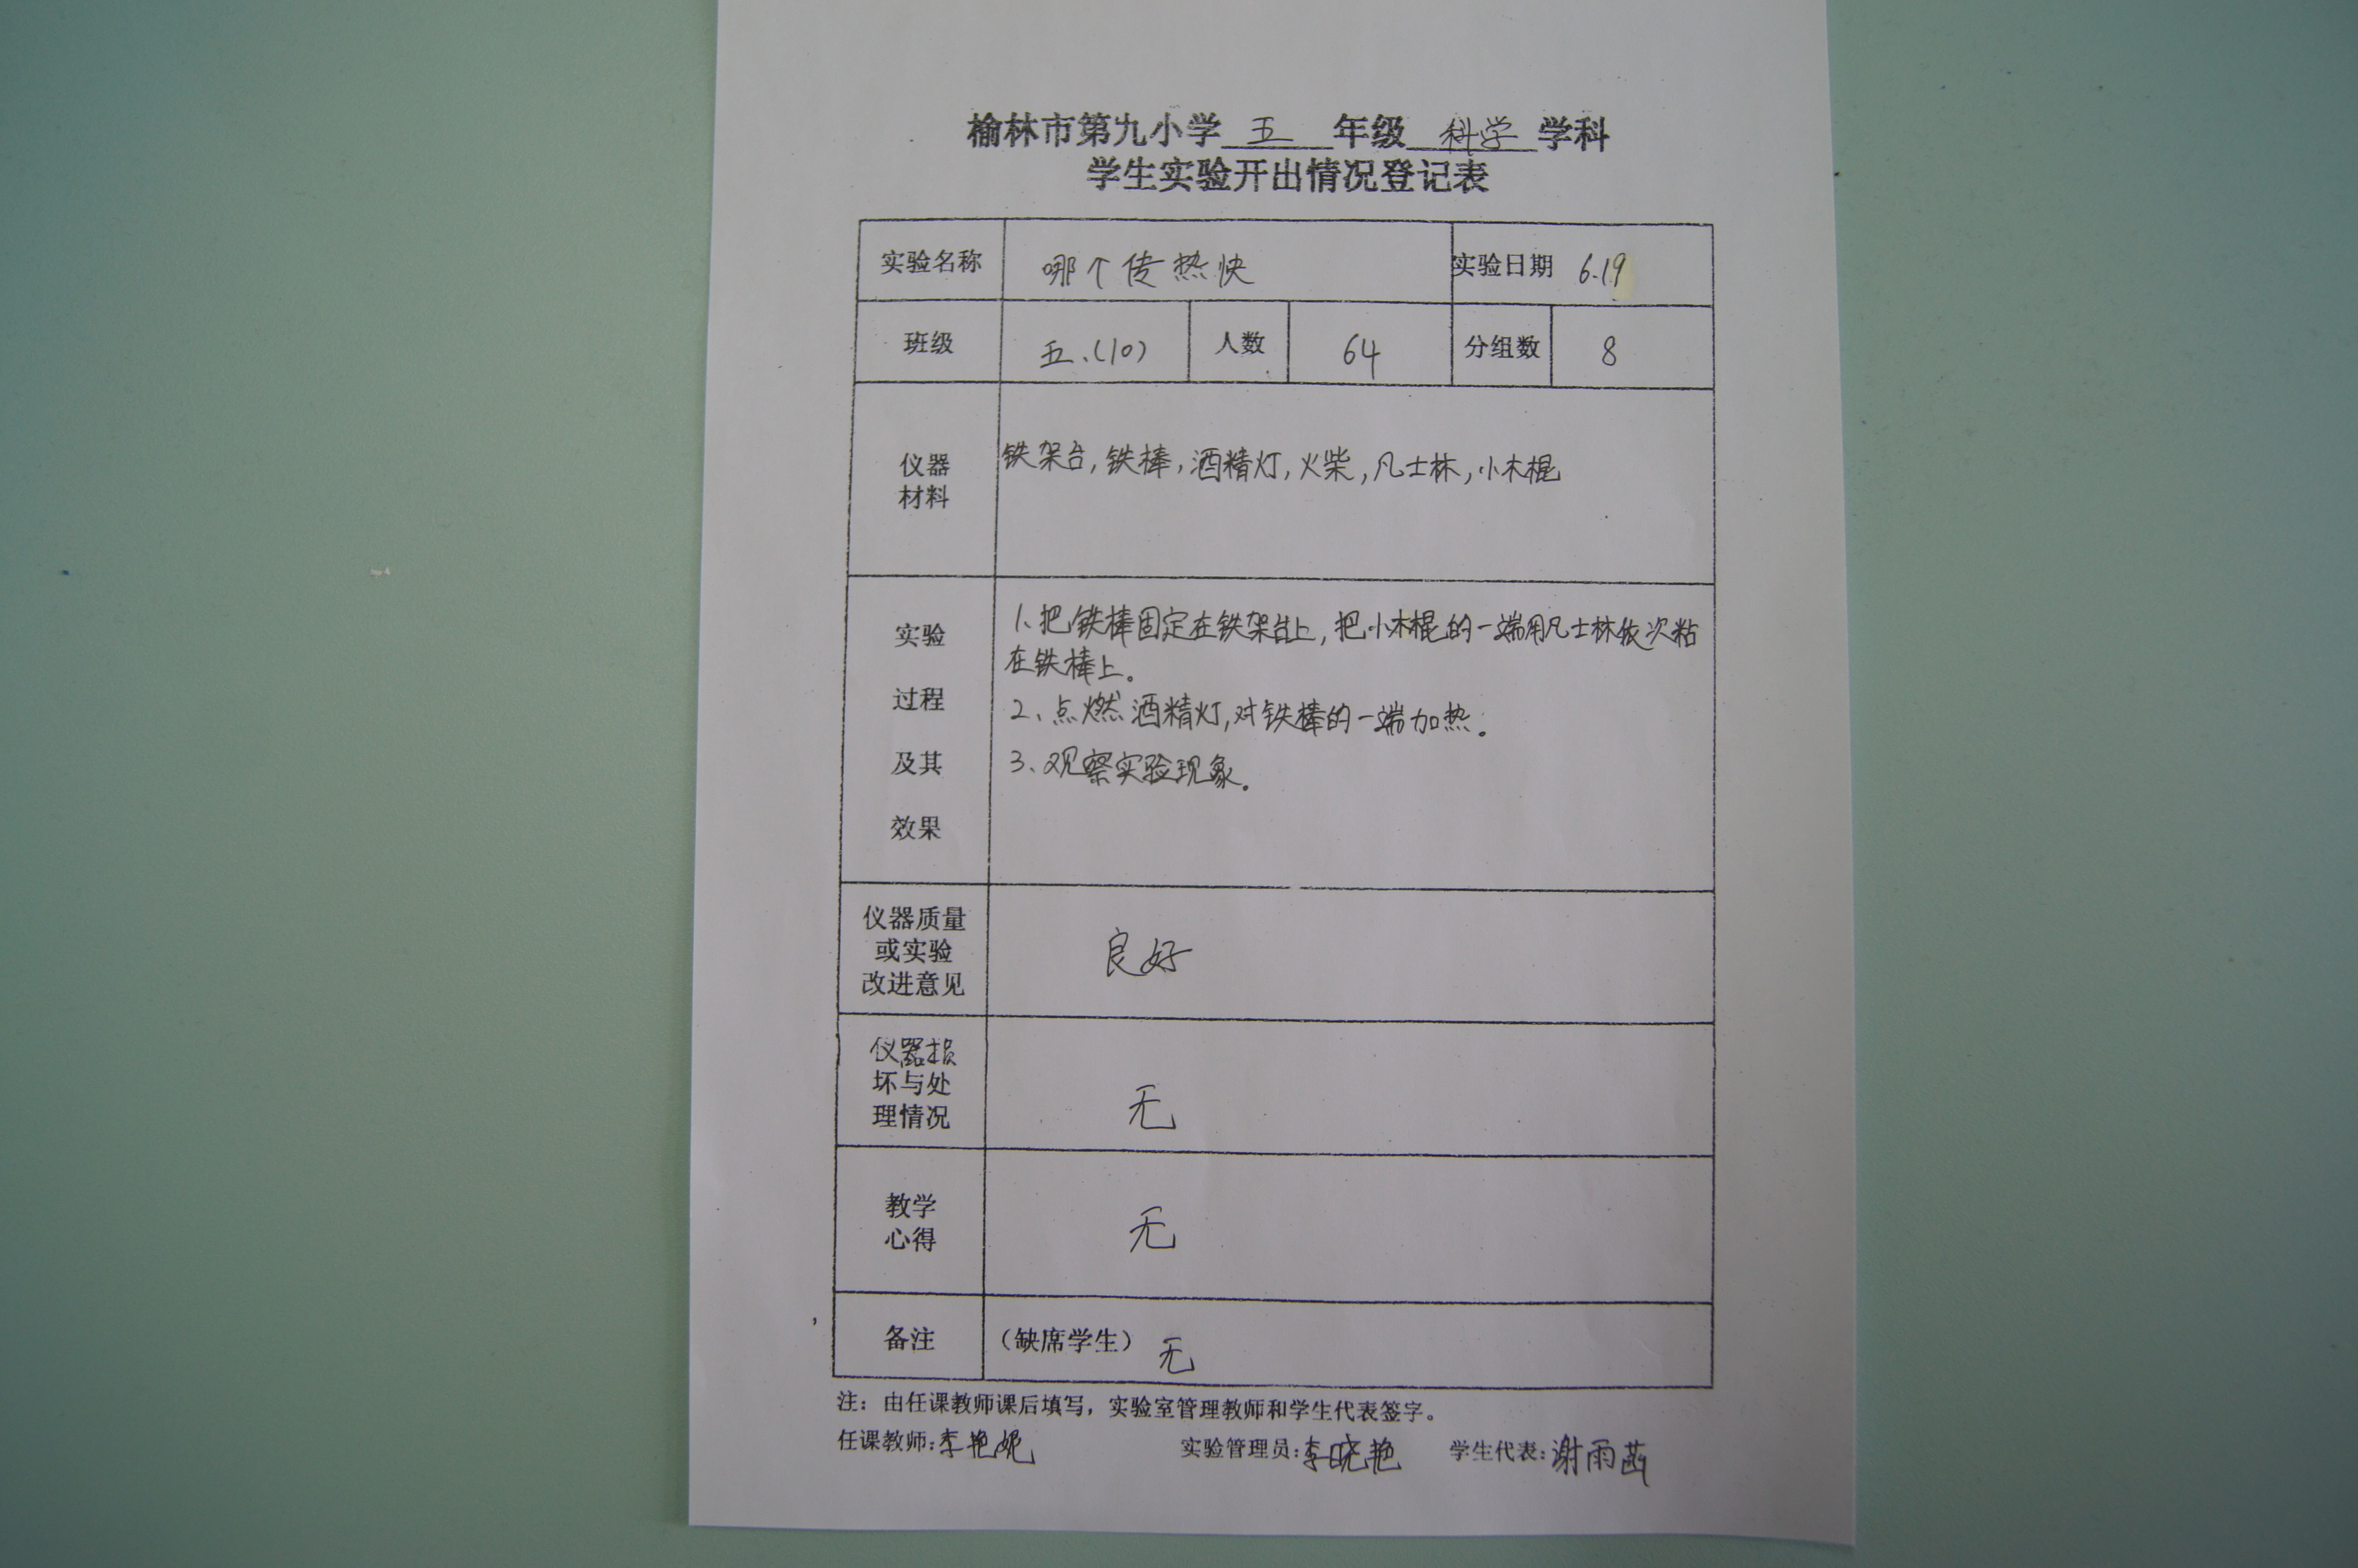 榆林市第九小学 五 年级 科学 学科
学生实验开出情况登记表
实验名称 哪个传热快 实验日期 6.19
班级 五.(10) 人数 64 分组数 8
仪器
材料
铁架台,铁棒,酒精灯,火柴,凡士林,小木棍
实验
过程
及其
效果
1、把铁棒固定在铁架台上,把小木棍的一端用凡士林依次粘
在铁棒上。
2、点燃酒精灯,对铁棒的一端加热。
3、观察实验现象。
仪器质量
或实验
改进意见
良好
仪器损
坏与处
理情况
无
教学
心得
无
备注 (缺席学生) 无
注:由任课教师课后填写,实验室管理教师和学生代表签字。
任课教师:李艳妮 实验管理员:李晓艳 学生代表:谢雨菡